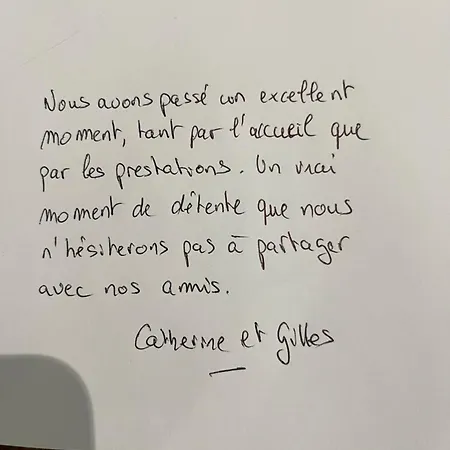 Nous avons passé un excellent
moment, tant par l'accueil que
par les prestations. Un vrai
moment de détente que nous
n'hésiterons pas à partager
avec nos amis.
Catherine et Gilles